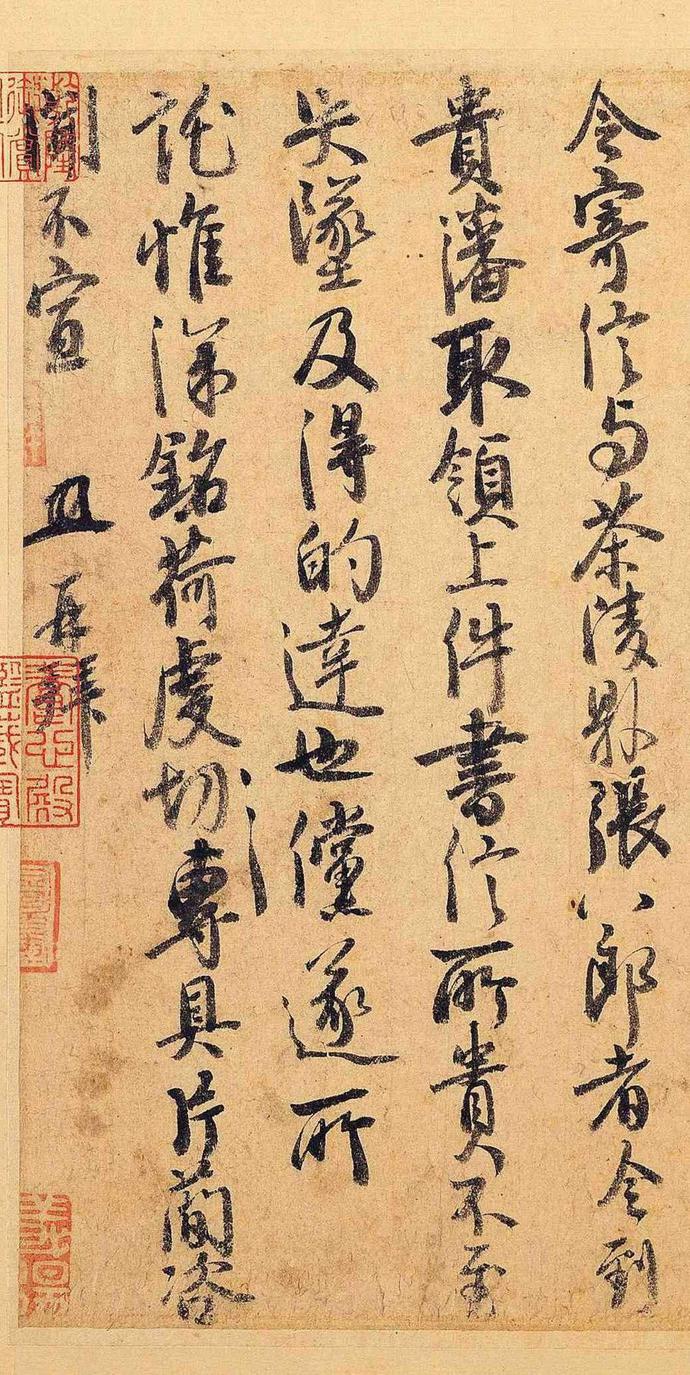 令寄信与茶陵县張八郎者令到
貴藩取領上件書信所貴不至
失墜及得的達也儻遂所
託惟深銘荷虔切專具片簡咨
聞不宣　且再拜